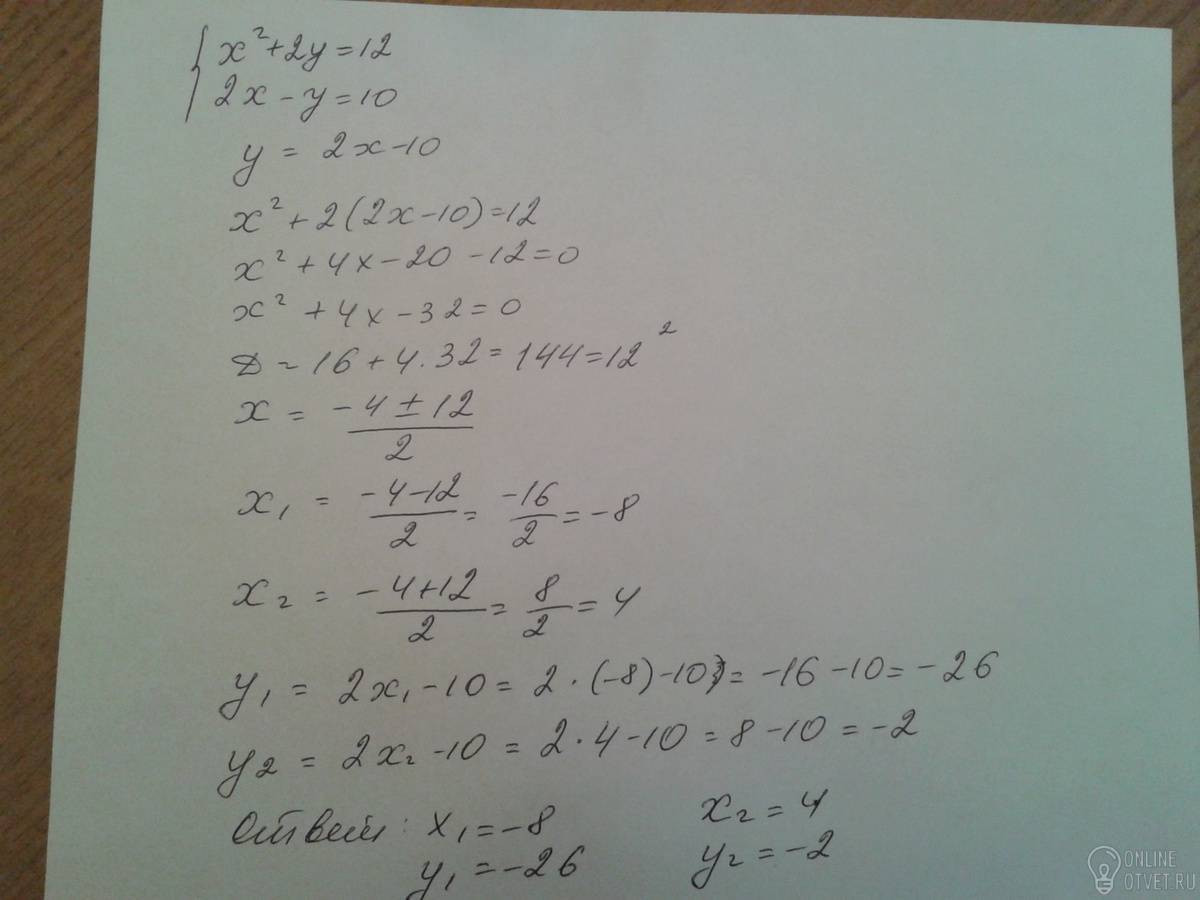 { x² + 2y = 12
2x - y = 10
y = 2x - 10
x² + 2(2x - 10) = 12
x² + 4x - 20 - 12 = 0
x² + 4x - 32 = 0
D = 16 + 4·32 = 144 = 12²
x = (-4 ± 12)/2
x₁ = (-4-12)/2 = -16/2 = -8
x₂ = (-4+12)/2 = 8/2 = 4
y₁ = 2x₁ - 10 = 2·(-8) - 10) = -16 - 10 = -26
y₂ = 2x₂ - 10 = 2·4 - 10 = 8 - 10 = -2
Ответ: x₁ = -8 x₂ = 4
y₁ = -26 y₂ = -2
ONLINE
OTVET.RU